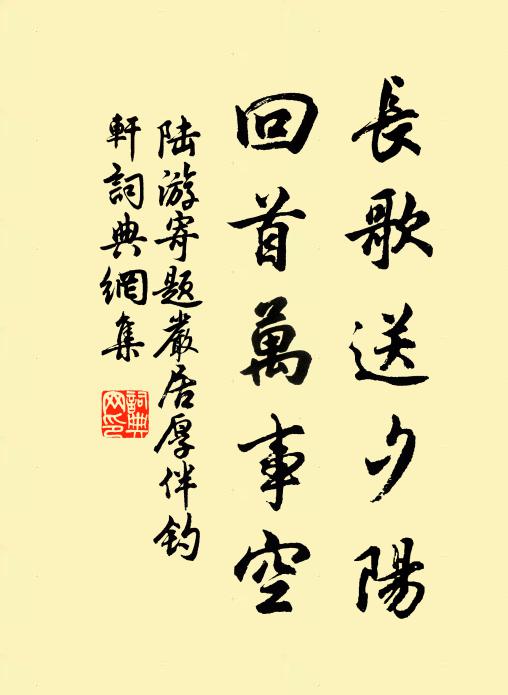 長歌送夕陽
回首萬事空
陆游寄题嚴居厚伴钓
軒詞典網集
詞典
网印